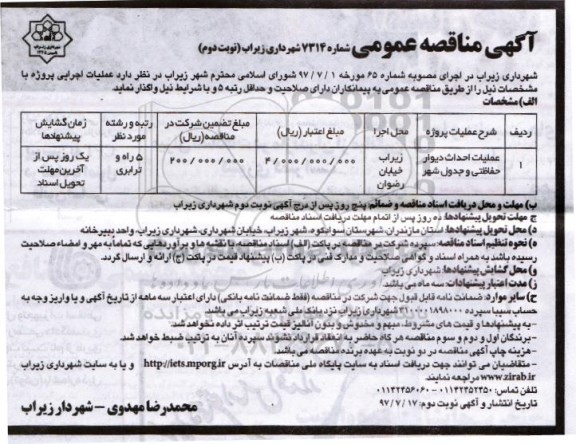 آگهی مناقصه عمومی شماره ۷۳۱۴ شهرداری زیراب (نوبت دوم)
شهرداری زیراب در اجرای مصوبه شماره ۶۵ مورخه ۹۷/۷/۱ شورای اسلامی محترم شهر زیراب در نظر دارد عملیات اجرایی پروژه با
مشخصات ذیل را از طریق مناقصه عمومی به پیمانکاران دارای صلاحیت و حداقل رتبه ۵ و با شرایط ذیل واگذار نماید.
الف) مشخصات
ردیف شرح عملیات پروژه محل اجرا مبلغ اعتبار (ریال) مبلغ تضمین شرکت در مناقصه (ریال) رتبه و رشته مورد نظر زمان گشایش پیشنهادها
۱ عملیات احداث دیوار حفاظتی و جدول شهر زیراب خیابان رضوان ۴/۰۰۰/۰۰۰/۰۰۰ ۲۰۰/۰۰۰/۰۰۰ ۵ راه و ترابری یک روز پس از آخرین مهلت تحویل اسناد
ب) مهلت و محل دریافت اسناد مناقصه و ضمائم: پنج روز پس از درج آگهی نوبت دوم شهرداری زیراب
ج مهلت تحویل پیشنهادها: ده روز پس از اتمام مهلت دریافت اسناد مناقصه
د) محل تحویل پیشنهادها: استان مازندران، شهرستان سوادکوه، شهر زیراب، خیابان شهرداری، شهرداری زیراب، واحد دبیرخانه
ه) نحوه تنظیم اسناد مناقصه: سپرده شرکت در مناقصه در پاکت (الف) اسناد مناقصه با نقشه ها و برآوردهایی که تماماً به مهر و امضاء صلاحیت
رسیده باشد به همراه اسناد و گواهی صلاحیت و مدارک فنی در پاکت (ب) پیشنهاد قیمت در پاکت (ج) ارائه و ارسال گردد.
و) محل گشایش پیشنهادها: شهرداری زیراب
ز) مدت اعتبار پیشنهادات: سه ماه می باشد.
ح) سایر موارد: ضمانت نامه قابل قبول جهت شرکت در مناقصه (فقط ضمانت نامه بانکی) دارای اعتبار سه ماهه از تاریخ آگهی و یا واریز وجه به
حساب سپرده شهرداری زیراب نزد بانک ملی شعبه زیراب می باشد.
- به پیشنهادها و قیمت های مشروط، مبهم و مخدوش و بدون آنالیز قیمت ترتیب اثر داده نخواهد شد.
- برندگان اول و دوم و سوم مناقصه هر گاه حاضر به انعقاد قرارداد نشوند سپرده آنان به ترتیب ضبط خواهد شد.
- هزینه چاپ آگهی مناقصه در دو نوبت به عهده برنده مناقصه می باشد.
- متقاضیان می توانند جهت دریافت اسناد به سایت پایگاه ملی مناقصات به آدرس http://iets.mporg.ir و یا به سایت شهرداری زیراب
www.zirab.ir مراجعه نمایند.
تلفن تماس: ۰۱۱۴۲۴۵۲۴۵۰ - ۰۱۱۴۲۴۵۶۰۶۰
تاریخ انتشار و آگهی نوبت دوم: ۹۷/۷/۱۷
محمدرضا مهدوی - شهردار زیراب